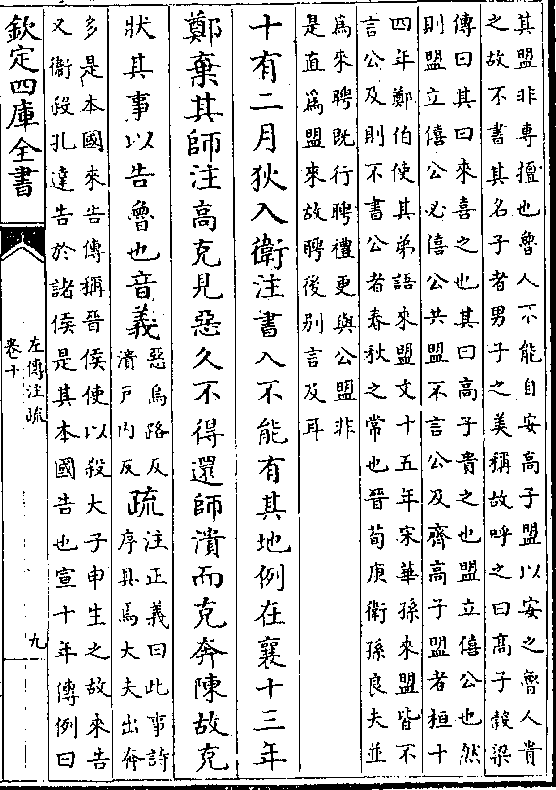 其盟非專擅也魯人不能自安高子盟以安之魯人貴
之故不書其名子者男子之美稱故呼之曰高子穀梁
傳曰其曰來喜之也其曰高子貴之也盟立僖公也然
則盟立僖公必僖公共盟不言公及齊高子盟者桓十
四年鄭伯使其弟語來盟文十五年宋華孫來盟皆不
言公及則不書公者春秋之常也晉荀庚衛孫良夫並
為來聘既行聘禮更與公盟非
是直為盟來故聘後别言及耳
十有二月狄入衛注書入不能有其地例在襄十三年
鄭棄其師注高克見惡久不得還師潰而克奔陳故克
狀其事以告魯也音義
惡烏路反
潰戸内反
疏
注正義曰此事詩
序具焉大夫出奔
多是本國來告傳稱晉侯使以殺大子申生之故來告
又衛殺孔達告於諸侯是其本國告也宣十年傳例曰
欽定四庫全書
左傳注疏
卷十
九